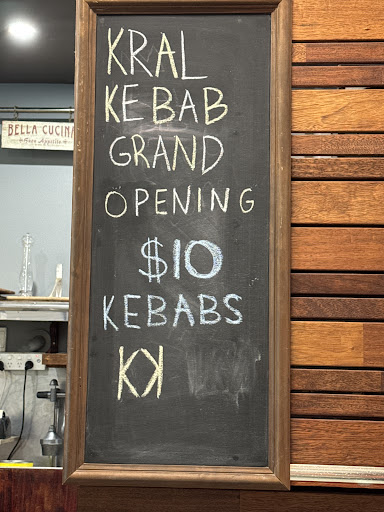 KRAL
KEBAB
GRAND
OPENING
$10
KEBABS
KK
BELLA CUCINA
Buon Appetito